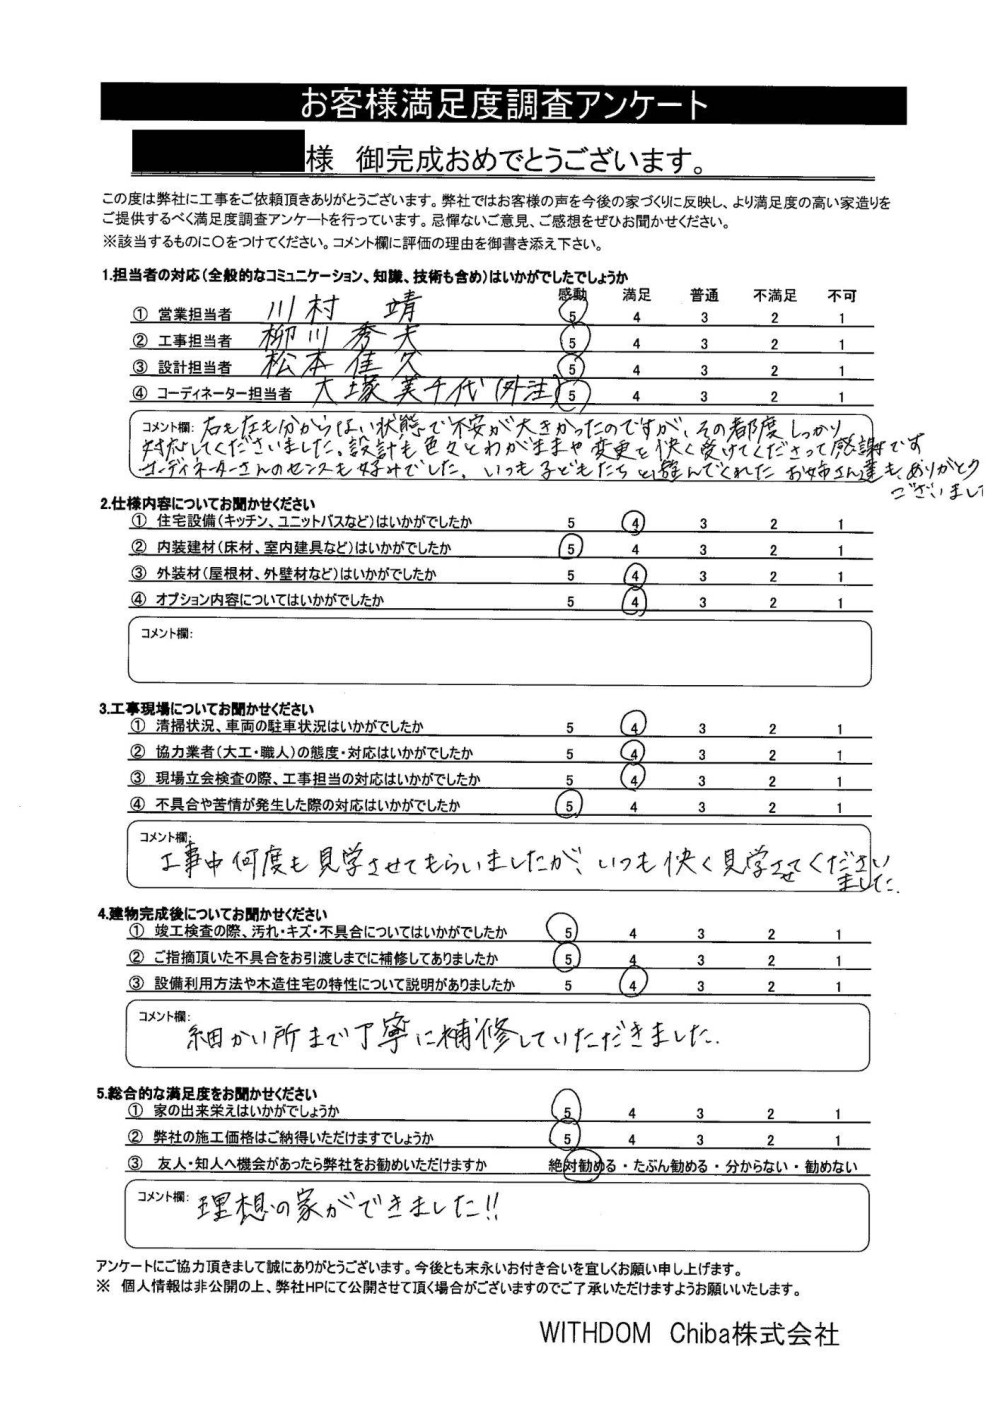 お客様満足度調査アンケート
様 御完成おめでとうございます。
この度は弊社に工事をご依頼頂きありがとうございます。弊社ではお客様の声を今後の家づくりに反映し、より満足度の高い家造りを
ご提供するべく満足度調査アンケートを行っています。忌憚ないご意見、ご感想をぜひお聞かせください。
※該当するものに〇をつけてください。コメント欄に評価の理由を御書き添え下さい。
1.担当者の対応(全般的なコミュニケーション、知識、技術も含め)はいかがでしたでしょうか
感動 満足 普通 不満足 不可
① 営業担当者 川村 靖 5 4 3 2 1
② 工事担当者 柳川 秀夫 5 4 3 2 1
③ 設計担当者 松本 佳久 5 4 3 2 1
④ コーディネーター担当者 大塚美千代(外注) 5 4 3 2 1
コメント欄: 右も左も分からない状態で不安が大きかったのですが、その都度しっかり
対応してくださいました。設計も色々とわがままや変更を快く受けてくださって感謝です
コーディネーターさんのセンスも好みでした。いつも子どもたちと遊んでくれたお姉さん達も、ありがとう
ございました
2.仕様内容についてお聞かせください
① 住宅設備(キッチン、ユニットバスなど)はいかがでしたか 5 4 3 2 1
② 内装建材(床材、室内建具など)はいかがでしたか 5 4 3 2 1
③ 外装材(屋根材、外壁材など)はいかがでしたか 5 4 3 2 1
④ オプション内容についてはいかがでしたか 5 4 3 2 1
コメント欄:
3.工事現場についてお聞かせください
① 清掃状況、車両の駐車状況はいかがでしたか 5 4 3 2 1
② 協力業者(大工・職人)の態度・対応はいかがでしたか 5 4 3 2 1
③ 現場立会検査の際、工事担当の対応はいかがでしたか 5 4 3 2 1
④ 不具合や苦情が発生した際の対応はいかがでしたか 5 4 3 2 1
コメント欄:
工事中何度も見学させてもらいましたが、いつも快く見学させてください
ました。
4.建物完成後についてお聞かせください
① 竣工検査の際、汚れ・キズ・不具合についてはいかがでしたか 5 4 3 2 1
② ご指摘頂いた不具合をお引渡しまでに補修してありましたか 5 4 3 2 1
③ 設備利用方法や木造住宅の特性について説明がありましたか 5 4 3 2 1
コメント欄:
細かい所まで丁寧に補修していただきました。
5.総合的な満足度をお聞かせください
① 家の出来栄えはいかがでしょうか 5 4 3 2 1
② 弊社の施工価格はご納得いただけますでしょうか 5 4 3 2 1
③ 友人・知人へ機会があったら弊社をお勧めいただけますか 絶対勧める・たぶん勧める・分からない・勧めない
コメント欄: 理想の家ができました!!
アンケートにご協力頂きまして誠にありがとうございます。今後とも末永いお付き合いを宜しくお願い申し上げます。
※ 個人情報は非公開の上、弊社HPにて公開させて頂く場合がございますのでご了承いただけますようお願いいたします。
WITHDOM Chiba株式会社